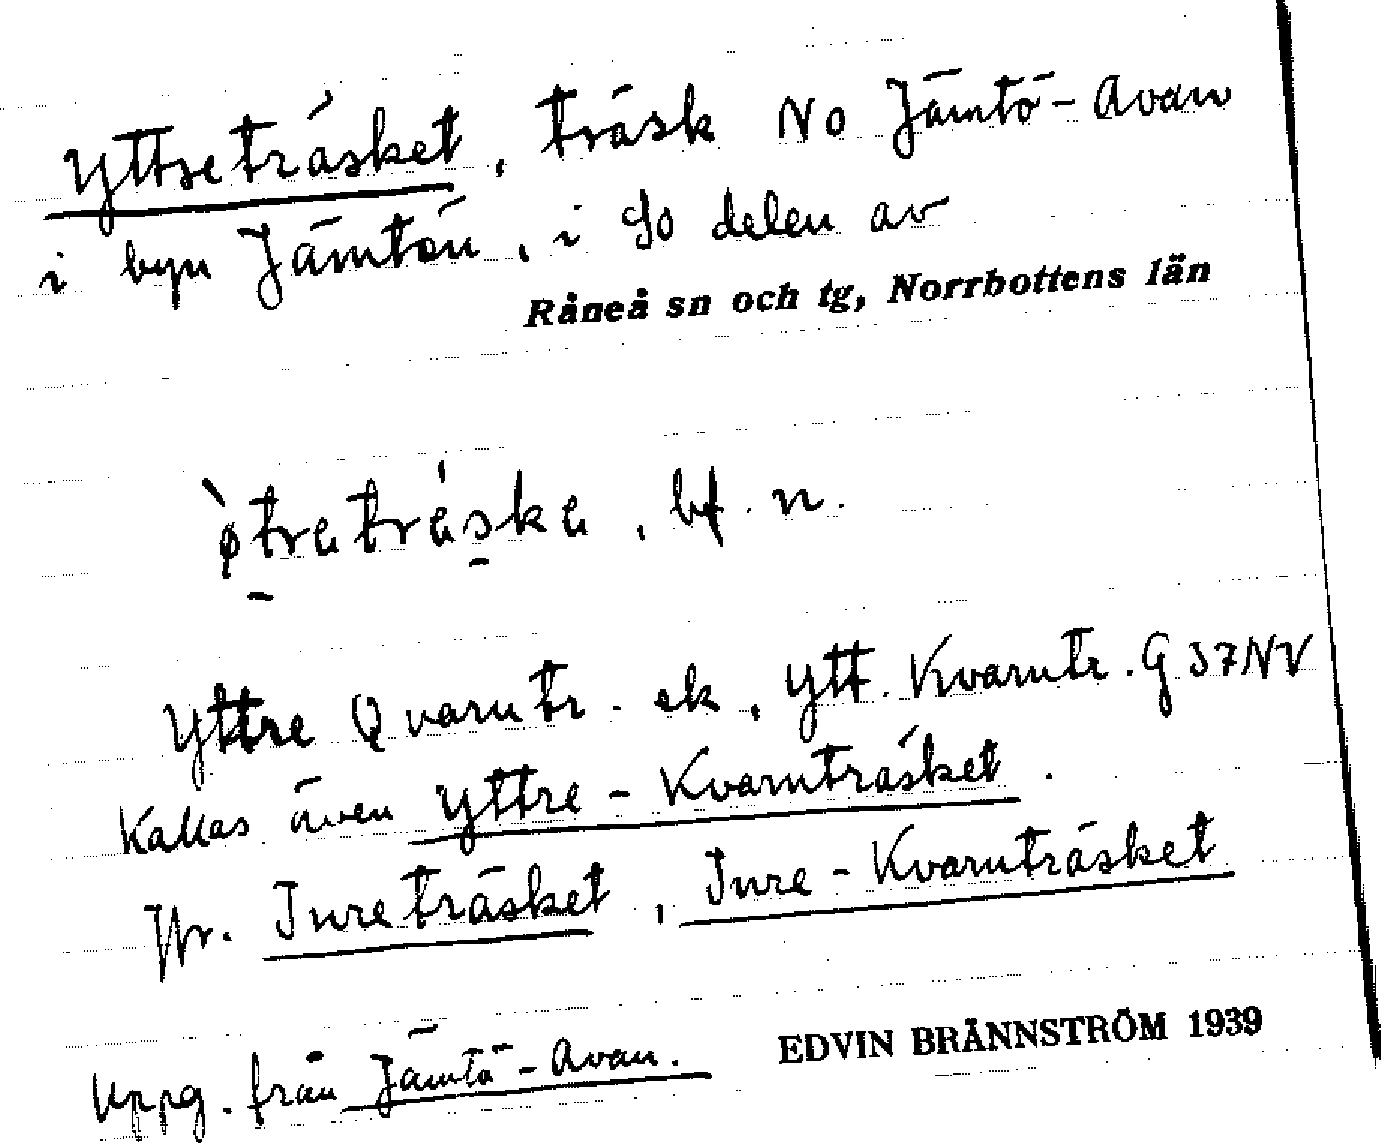 Yttreträsket, träsk No Jämtö-Avan
i byn Jämtön, i So delen av
Råneå sn och tg, Norrbottens län
bf. n.
Yttre Qvarntr. ek, Ytt. Kvarntr. G 37 NV
Kallas även Yttre-Kvarnträsket.
Jfr. Inreträsket, Inre-Kvarnträsket
Uppg. från Jämtö-Avan.
EDVIN BRÄNNSTRÖM 1939